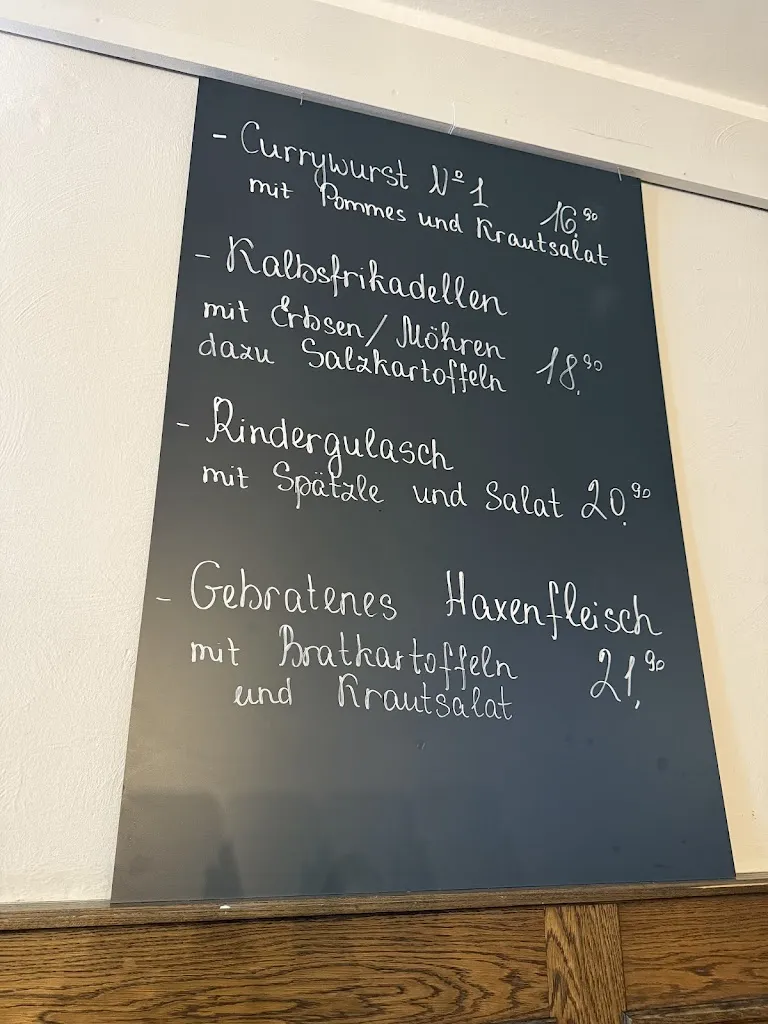 - Currywurst Nº 1 16,90
mit Pommes und Krautsalat
- Kalbsfrikadellen
mit Erbsen/Möhren
dazu Salzkartoffeln 18,90
- Rindergulasch
mit Spätzle und Salat 20,90
- Gebratenes Haxenfleisch
mit Bratkartoffeln 21,90
und Krautsalat